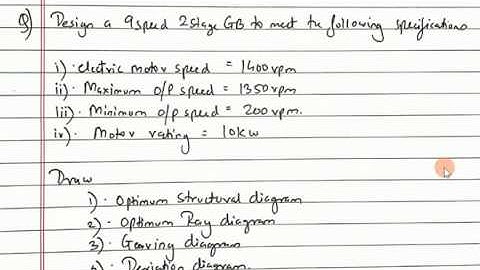 Q) Design a 9 speed 2 stage GB to meet the following specifications
i) · electric motor speed = 1400 rpm
ii) · Maximum o/p speed = 1350 rpm
iii) · Minimum o/p speed = 200 rpm.
iv) · Motor rating = 10 kw
Draw
1) · Optimum Structural diagram
2) · Optimum Ray diagram
3) · Gearing diagram
4) · Deviation diagram.